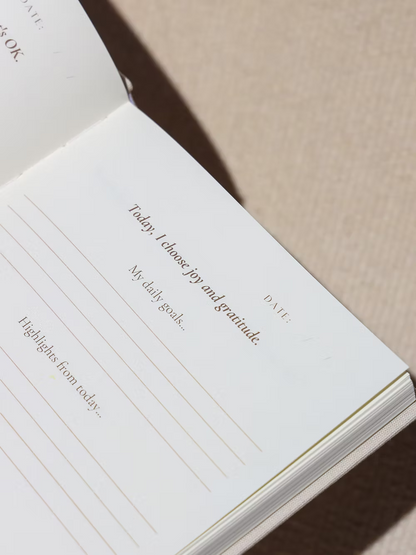 DATE:
's OK.
DATE: / /
Today, I choose joy and gratitude.
My daily goals...
Highlights from today...